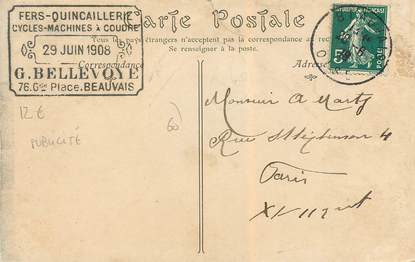 FERS-QUINCAILLERIE
CYCLES-MACHINES À COUDRE
29 JUIN 1908
G. BELLEVOYE
76. Gde Place. BEAUVAIS
Carte Postale
Tous les pays étrangers n'acceptent pas la correspondance au recto.
Se renseigner à la poste.
Correspondance
Adresse
5c
POSTE
12 €
PUBLICITÉ
60
Monsieur A Marty
Rue Stephenson 4
Paris
XVIII